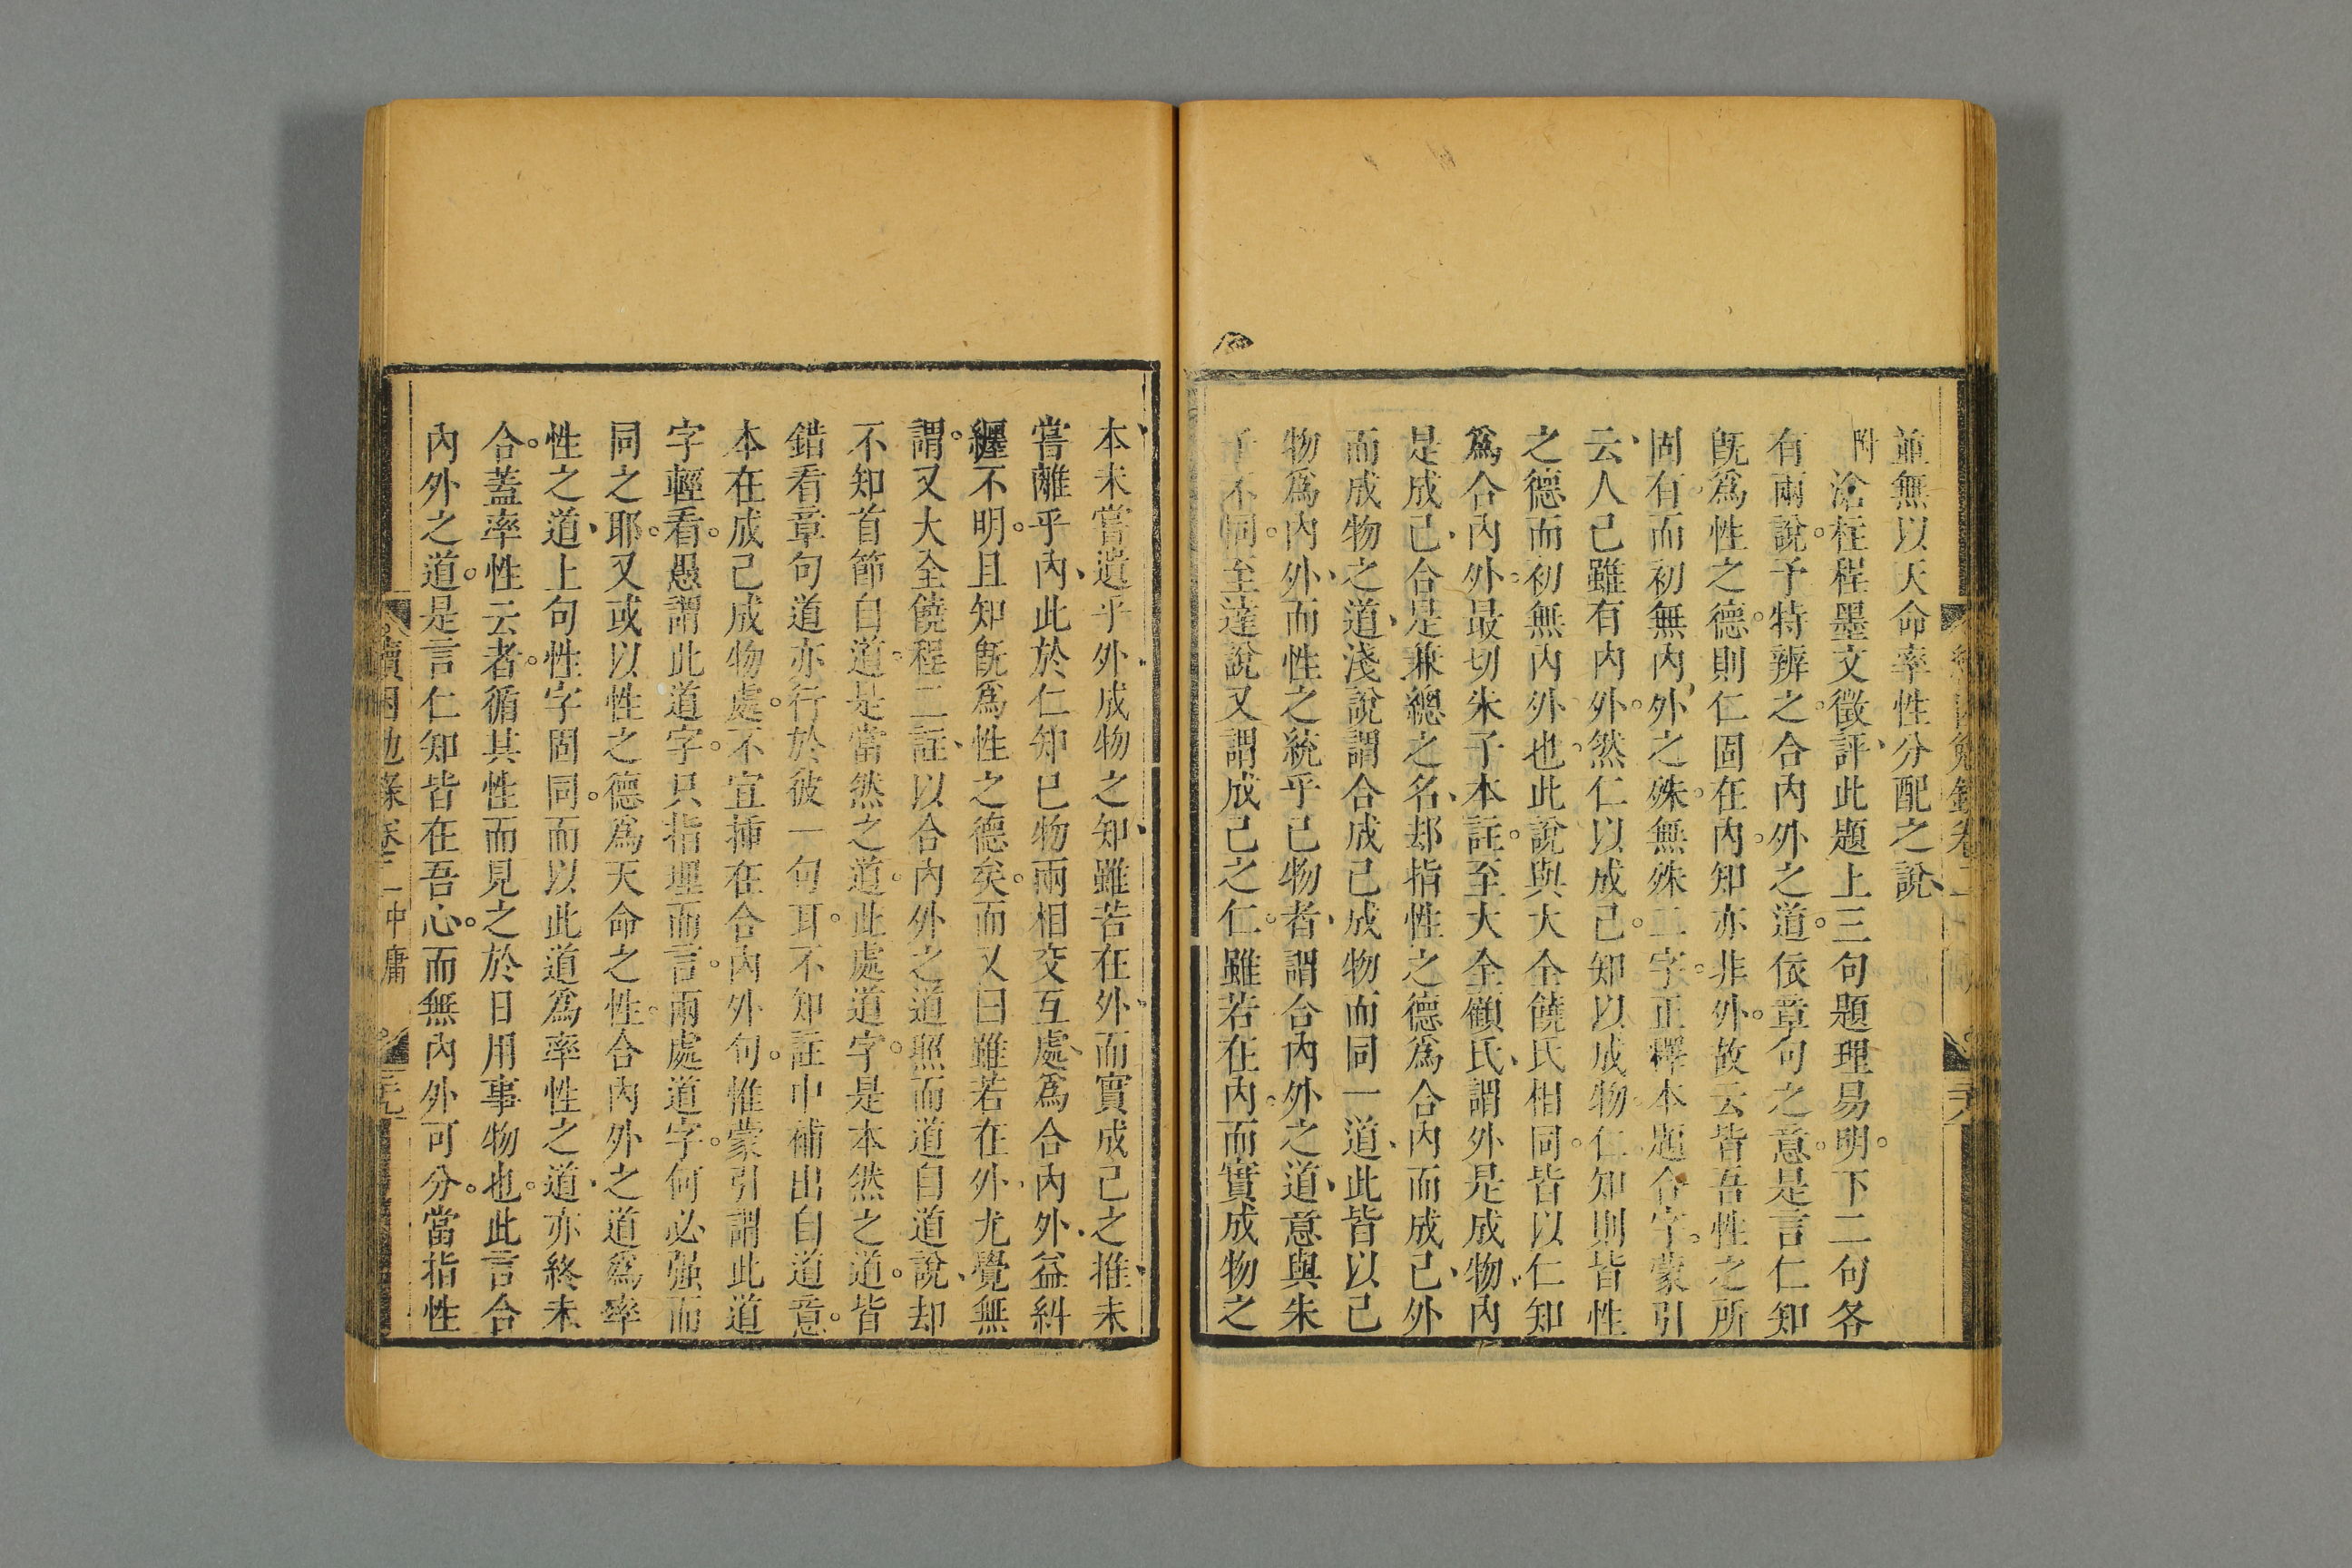 並無以天命率性分配之說
附滄柱程墨文徵評此題上三句題理易明下二句各
有兩說予特辨之合內外之道依章句之意是言仁知
旣爲性之德則仁固在內知亦非外故云皆吾性之所
固有而初無內外之殊無殊二字正釋本題合字蒙引
云人己雖有內外然仁以成己知以成物仁知則皆性
之德而初無內外也此說與大全饒氏相同皆以仁知
爲合內外最切朱子本註至大全顧氏謂外是成物內
是成己合是兼總之名却指性之德爲合內而成己外
而成物之道淺說謂合成己成物而同一道此皆以己
物爲內外而性之統乎己物者謂合內外之道意與朱
子不同至達說又謂成己之仁雖若在內而實成物之
本未嘗遺乎外成物之知雖若在外而實成己之推未
嘗離乎內此於仁知已物兩相交互處爲合內外益糾
纒不明且知旣爲性之德矣而又曰雖若在外尤覺無
謂又大全饒程二註以合內外之道照而道自道說却
不知首節自道是當然之道此處道字是本然之道皆
錯看章句道亦行於彼一句耳不知註中補出自道意
本在成己成物處不宜揷在合內外句惟蒙引謂此道
字輕看愚謂此道字只指理而言兩處道字何必强而
同之耶又或以性之德爲天命之性合內外之道爲率
性之道上句性字固同而以此道爲率性之道亦終未
合蓋率性云者循其性而見之於日用事物也此言合
內外之道是言仁知皆在吾心而無內外可分當指性
讀困勉錄卷二 中庸 三九